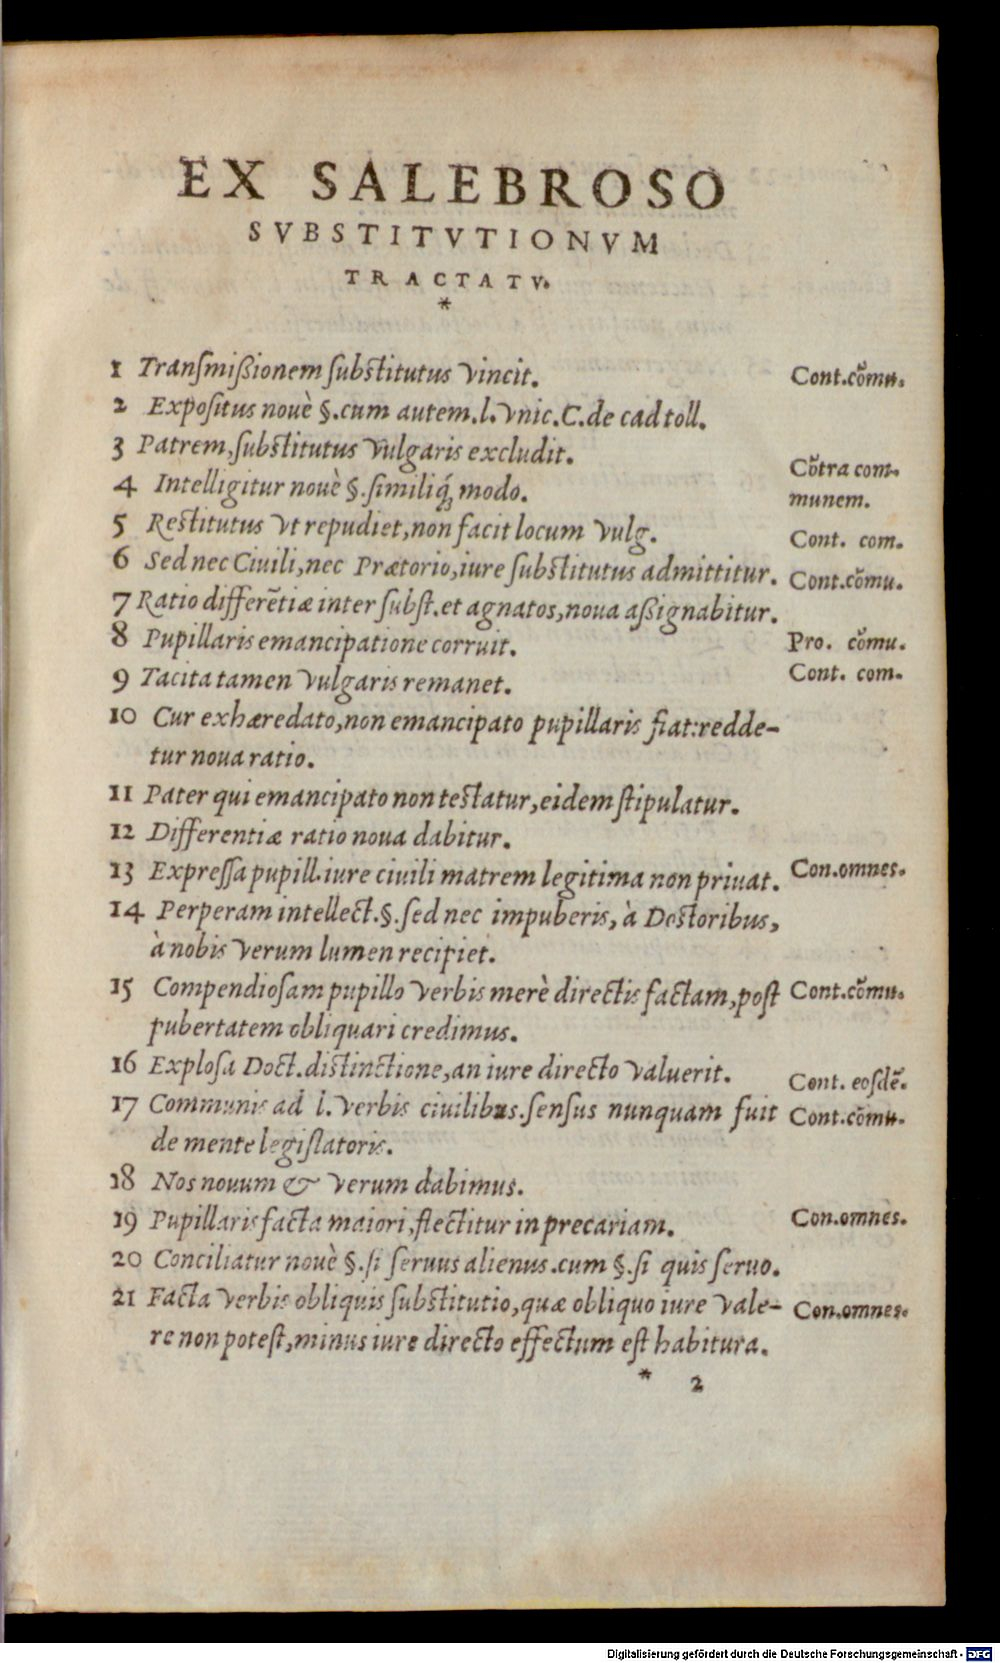 EX SALEBROSO
SVBSTITVTIONVM
TRACTATV.
*
1 Transmißionem substitutus vincit. Cont.cõmu.
2 Expositus nouè §.cum autem.l.vnic.C.de cad toll.
3 Patrem,substitutus vulgaris excludit.
Cõtra com-
4 Intelligitur nouè §.similiq́; modo.
munem.
5 Restitutus vt repudiet,non facit locum vulg. Cont. com.
6 Sed nec Ciuili,nec Prætorio,iure substitutus admittitur. Cont.cõmu.
7 Ratio differẽtiæ inter subst.et agnatos,noua aßignabitur.
8 Pupillaris emancipatione corruit. Pro. cõmu.
9 Tacita tamen vulgaris remanet. Cont. com.
10 Cur exhæredato,non emancipato pupillaris fiat:redde-
tur noua ratio.
11 Pater qui emancipato non testatur,eidem stipulatur.
12 Differentiæ ratio noua dabitur.
13 Expressa pupill.iure ciuili matrem legitima non priuat. Con.omnes.
14 Perperam intellect.§.sed nec impuberis, à Doctoribus,
à nobis verum lumen recipiet.
15 Compendiosam pupillo verbis merè directis factam,post Cont.cõmu.
pubertatem obliquari credimus.
16 Explosa Doct.distinctione,an iure directo valuerit.
Cont. eosdẽ.
17 Communis ad l.verbis ciuilibus.sensus nunquam fuit Cont.cõmu.
de mente legislatoris.
18 Nos nouum & verum dabimus.
19 Pupillaris facta maiori,flectitur in precariam. Con.omnes.
20 Conciliatur nouè §.si seruus alienus.cum §.si quis seruo.
21 Facta verbis obliquis substitutio,quæ obliquo iure vale- Con.omnes.
re non potest,minus iure directo effectum est habitura.
* 2
Digitalisierung gefördert durch die Deutsche Forschungsgemeinschaft - DFG